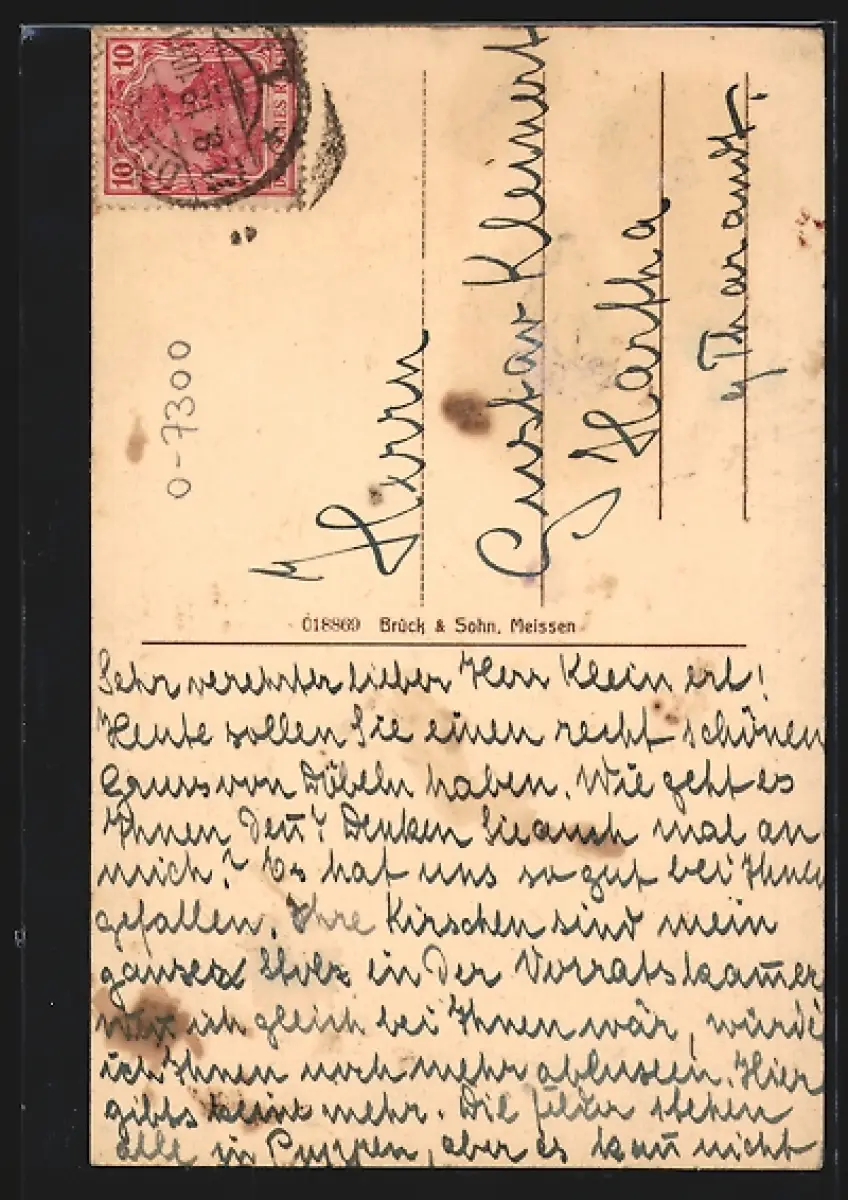 10 10
DEUTSCHES REICH
0-7300
Herrn
Gustav Kleinert
Hartha
b/ Tharandt.
018869 Brück & Sohn, Meissen
Sehr verehrter lieber Herr Kleinert!
Heute sollen Sie einen recht schönen
Gruss von Döbeln haben. Wie geht es
Ihnen deñ? Denken Sie auch mal an
mich? Es hat uns so gut bei Ihnen
gefallen. Ihre Kirschen sind mein
ganzer Stolz in der Vorratskam̄er
ich gleich bei Ihnen wär, würde
ich Ihnen noch mehr ablusen. Hier
gibts keine mehr. Die Felder stehen
alle in Puppen, aber es kañ nicht